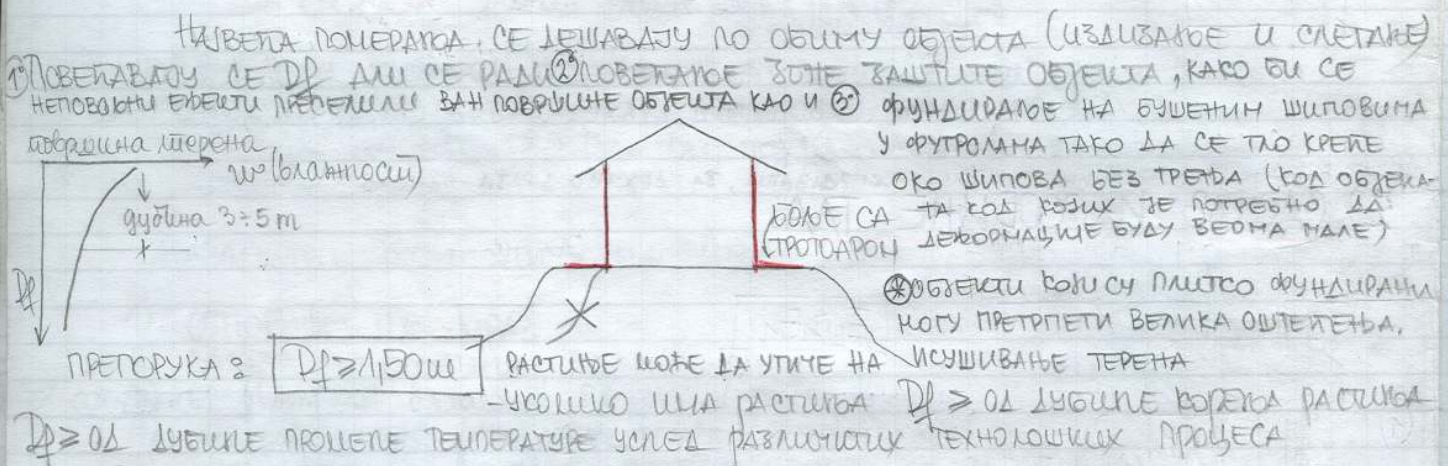 НАЈВЕЋА ПОМЕРАЊА СЕ ДЕШАВАЈУ ПО ОБИМУ ОБЈЕКТА (ИЗДИЗАЊЕ И СЛЕГАЊЕ)
1° ПОВЕЋАВАЈУ СЕ Df ИЛИ СЕ РАДИ 2° ПОВЕЋАЊЕ ЗОНЕ ЗАШТИТЕ ОБЈЕКТА, КАКО БИ СЕ
НЕПОВОЉНИ ЕФЕКТИ ПРЕСЕЛИЛИ ВАН ПОВРШИНЕ ОБЈЕКТА КАО И 3° ФУНДИРАЊЕ НА БУШЕНИМ ШИПОВИМА
У ФУТРОЛАМА ТАКО ДА СЕ ТЛО КРЕЋЕ
ОКО ШИПОВА БЕЗ ТРЕЊА (КОД ОБЈЕКА-
ТА КОД КОЈИХ ЈЕ ПОТРЕБНО ДА
ДЕФОРМАЦИЈЕ БУДУ ВЕОМА МАЛЕ)
површина терена
w (влажност)
дубина 3÷5 m
Df
БОЉЕ СА
ТРОТОАРОМ
* ОБЈЕКТИ КОЈИ СУ ПЛИТКО ФУНДИРАНИ
МОГУ ПРЕТРПЕТИ ВЕЛИКА ОШТЕЋЕЊА.
ПРЕПОРУКА: Df ≥ 1,50m РАСТИЊЕ МОЖЕ ДА УТИЧЕ НА ИСУШИВАЊЕ ТЕРЕНА
- УКОЛИКО ИМА РАСТИЊА Df ≥ ОД ДУБИНЕ КОРЕЊА РАСТИЊА
Df ≥ ОД ДУБИНЕ ПРОМЕНЕ ТЕМПЕРАТУРЕ УСЛЕД РАЗЛИЧИТИХ ТЕХНОЛОШКИХ ПРОЦЕСА